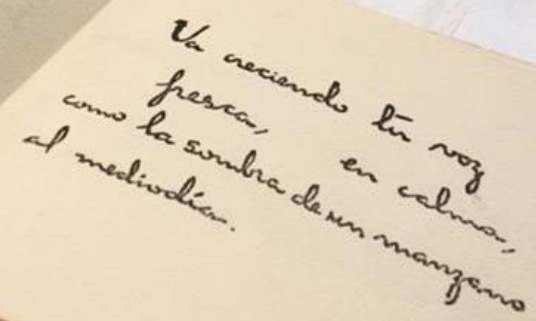 Va creciendo tu voz
fresca, en calma,
como la sombra de un manzano
al mediodía.